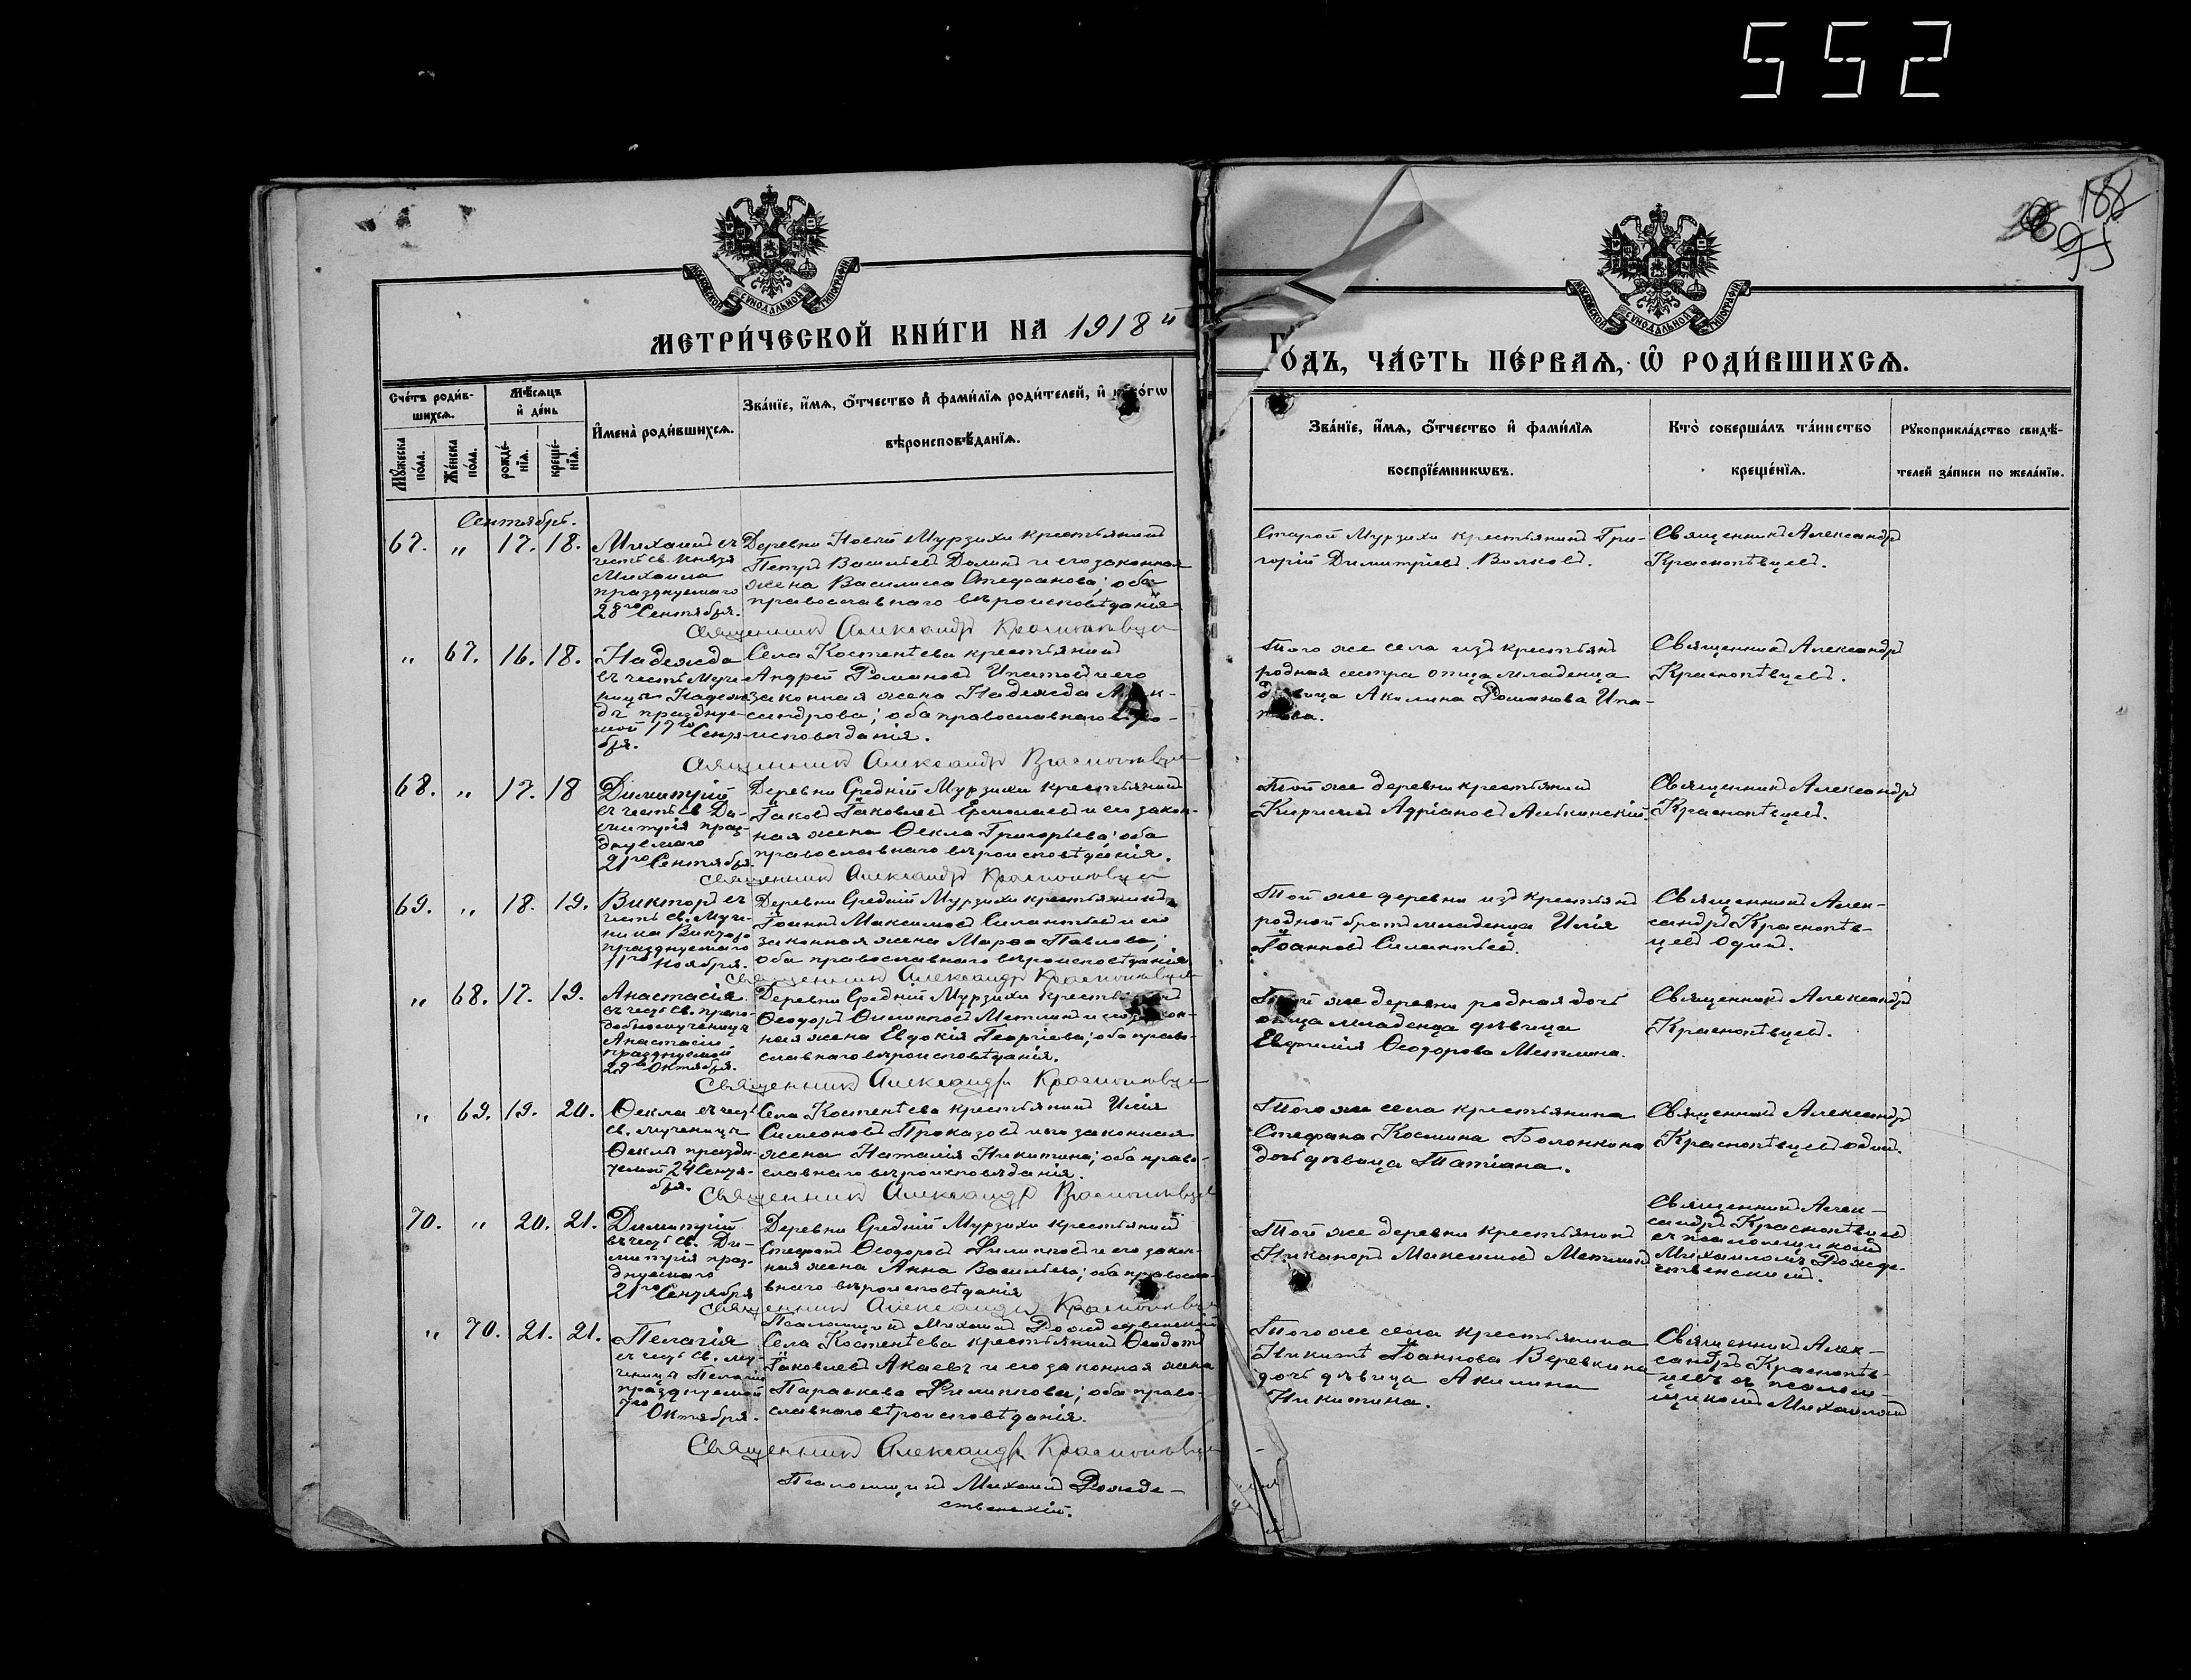 552
188
95
МОСКОВСКОЙ СѴНОДАЛЬНОЙ ТИПОГРАФІИ
МЕТРИ́ЧЕСКОЙ КНИ́ГИ НА 1918й
МОСКОВСКОЙ СѴНОДАЛЬНОЙ ТИПОГРАФІИ
ГО́ДЪ, ЧА́СТЬ ПЕ́РВАѦ, Ѡ҆ РОДИ́ВШИХСѦ.
Сче́тъ роди́в-
шихсѧ.
Мꙋ́жеска по́ла.
Же́нска по́ла.
Мѣ́сѧцъ
и҆ де́нь
рожде́-
нїѧ.
креще́-
нїѧ.
И҆мена̀ роди́вшихсѧ.
Зва́нїе, и҆́мѧ, ѻ҆́тчество и҆ фами́лїѧ роди́телей, и҆
вѣроисповѣ́данїѧ.
Зва́нїе, и҆́мѧ, ѻ҆́тчество и҆ фами́лїѧ
воспрїе́мникѡвъ.
Кто̀ соверша́лъ та́инство
креще́нїѧ.
Рꙋкоприкла́дство свидѣ́-
телей за́писи по жела́нїю.
Сентябрь.
67. " 17. 18.
Михаилъ въ
честь св. Князя
Михаила
празднуемаго
28го Сентября.
Деревни Новой Мурзихи крестьянинъ
Петръ Васильевъ Долинъ и его законная
жена Василисса Стефанова; оба
православнаго вѣроисповѣданія
Священникъ Александръ Краснопѣвцевъ
Старой Мурзихи крестьянинъ Гри-
горій Димитріевъ Волковъ.
Священникъ Александръ
Краснопѣвцевъ.
" 67. 16. 18.
Надежда
въ честь муче-
ницы Надеж-
ды празднуе-
мой 17го Сентя-
бря.
Села Костенѣева крестьянинъ
Андрей Романовъ Ипатовъ и его
законная жена Надежда
сандрова; оба православнаго
исповѣданія.
Священникъ Александръ Краснопѣвцевъ
Того же села изъ крестьянъ
родная сестра отца младенца
дѣвица Акилина Романова Ипа-
това.
Священникъ Александръ
Краснопѣвцевъ.
68. " 17. 18
Димитрій
въ честь св. Ди-
митрія праз-
днуемаго
21го Сентября.
Деревни Средній Мурзихи крестьянинъ
Іаковъ Іаковлевъ Ермолаевъ и его закон-
ная жена Ѳекла Григорьева; оба
православнаго вѣроисповѣданія.
Священникъ Александръ Краснопѣвцевъ
Той же деревни крестьянинъ
Кириллъ Адріановъ
Священникъ Александръ
Краснопѣвцевъ.
69. " 18. 19.
Викторъ въ
честь св. муче-
ника Виктора
празднуемаго
11го Ноября.
Деревни Средній Мурзихи крестьянинъ
Іоаннъ Максимовъ Силантьевъ и его
законная жена Марѳа Павлова;
оба православнаго вѣроисповѣданія.
Священникъ Александръ Краснопѣвцевъ
Той же деревни изъ крестьянъ
родной братъ младенца Илія
Іоанновъ Силантьевъ.
Священникъ Алек-
сандръ Краснопѣв-
цевъ одинъ.
" 68. 17. 19.
Анастасія
въ честь св. препо-
добномученицы
Анастасіи
празднуемой
29го Октября.
Деревни Средній Мурзихи
Ѳеодоръ Филипповъ Метлинъ и его закон-
ная жена Евдокія Георгіева; оба право-
славнаго вѣроисповѣданія.
Священникъ Александръ Краснопѣвцевъ
Той же деревни родная дочь
отца младенца дѣвица
Евфимія Ѳеодорова Метлина.
Священникъ Александръ
Краснопѣвцевъ.
" 69. 19. 20.
Ѳекла въ честь
св. мученицы
Ѳеклы праздн-
уемой 24 Сентя-
бря.
Села Костенѣева крестьянинъ Илія
Симеоновъ Проказовъ и его законная
жена Наталія Никитина; оба право-
славнаго вѣроисповѣданія.
Священникъ Александръ Краснопѣвцевъ
Того же села крестьянина
Стефана Космина Болонкина
дочь дѣвица Татіана.
Священникъ Александръ
Краснопѣвцевъ одинъ.
70. " 20. 21.
Димитрій
въ честь св. Ди-
митрія праз-
днуемаго
21го Сентября
Деревни Средній Мурзихи крестьянинъ
Стефанъ Ѳеодоровъ Филипповъ и его закон-
ная жена Анна Васильева; оба правосла-
внаго вѣроисповѣданія
Священникъ Александръ Краснопѣвцевъ
Псаломщикъ Михаилъ Рождественскій
Той же деревни крестьянинъ
Никаноръ Максимовъ Метлинъ
Священникъ Алек-
сандръ Краснопѣвцевъ
съ псаломщикомъ
Михаиломъ Рожде-
ственскимъ.
" 70. 21. 21.
Пелагія
въ честь св. му-
ченицы Пелагіи
празднуемой
7го Октября.
Села Костенѣева крестьянинъ Ѳеодотъ
Іаковлевъ Акаевъ и его законная жена
Параскева Филиппова; оба право-
славнаго вѣроисповѣданія.
Священникъ Александръ Краснопѣвцевъ
Псаломщикъ Михаилъ Рожде-
ственскій.
Того же села крестьянина
Никиты Іоаннова Веревкина
дочь дѣвица Акилина
Никитина.
Священникъ Алек-
сандръ Краснопѣв-
цевъ съ псалом-
щикомъ Михаиломъ